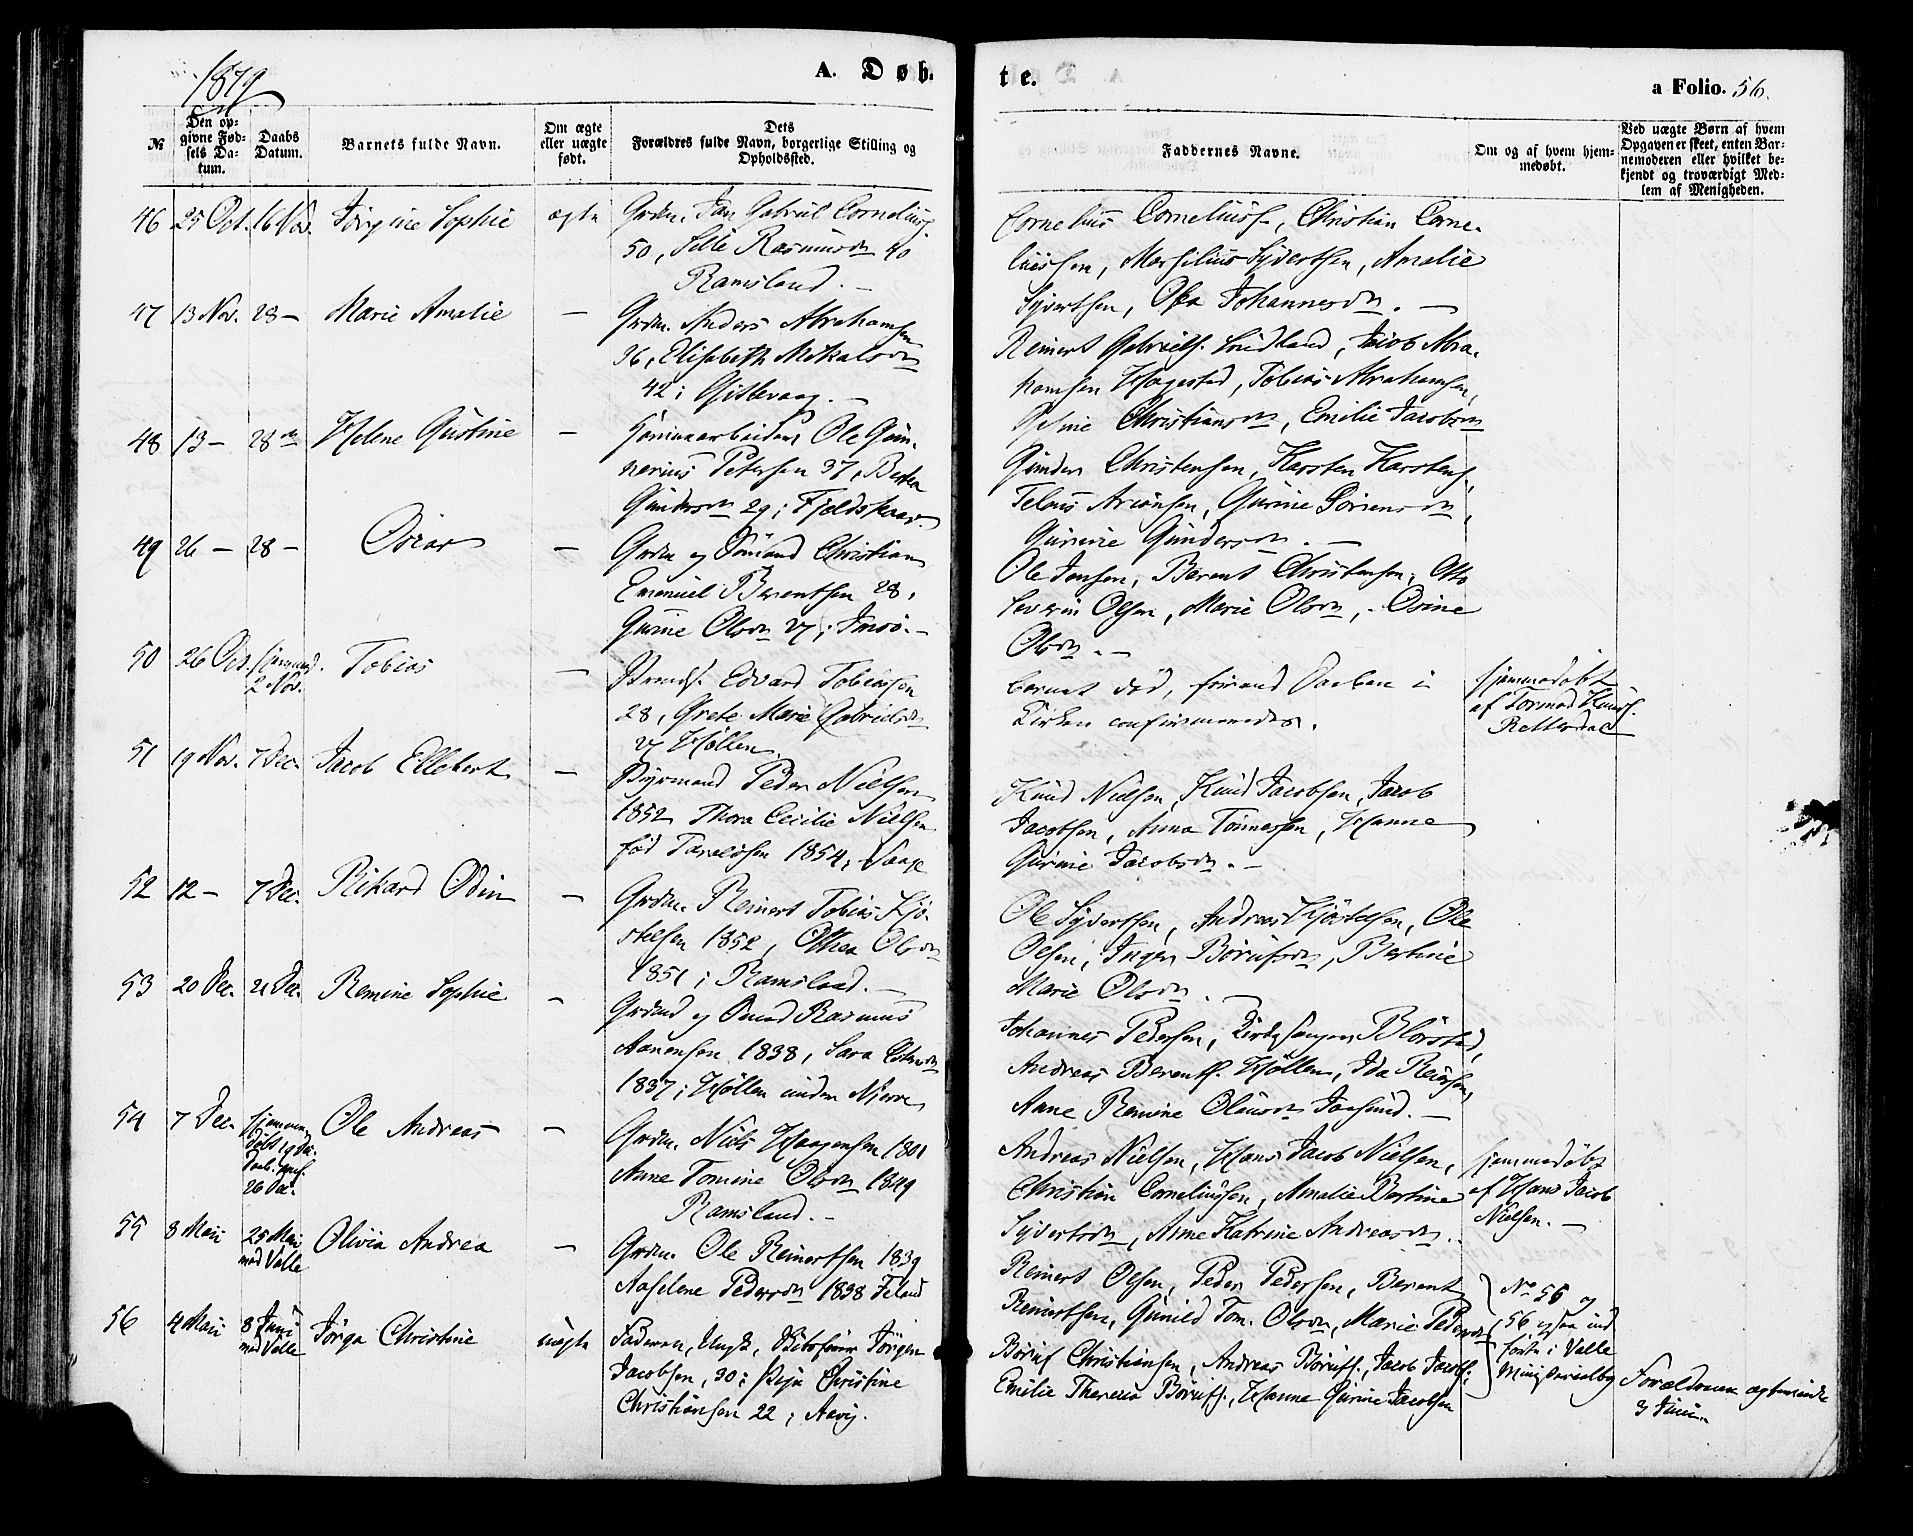 1879
A. Døb-
te.
a Folio. 56.
№
Den op-
givne Fød-
sels Da-
tum.
Daabs
Datum.
Barnets fulde Navn.
Om ægte
eller uægte
født.
Dets
Forældres fulde Navn, borgerlige Stilling og
Opholdssted.
Faddernes Navne.
Om og af hvem hjem-
medøbt.
Ved uægte Børn af hvem
Opgaven er skeet, enten Bar-
nemoderen eller hvilket be-
kjendt og troværdigt Med-
lem af Menigheden.
46 25 Oct. 16 Nov. Jørgine Sophie ægte Grdm. Jan Gabriel Corneliusf.
50, Sille Rasmusdn 40
Ramsland. —
Cornelius Corneliusf., Christian Corne-
liussen, Marsilius Syvertsen, Amalie
Syvertsen, Johannesdn. —
47 13 Nov. 28 — Marie Amalie — Grdm. Anders Abrahamsen
36, Elisabeth Mikalsdn
42; Gittevaag. —
Reinert Gabrielf. Lindland, Jacob Abra-
hamsen Hagestad, Tobias Abrahamsen,
Christiansdn, Emilie Jacobsdn
48 13 — 28de Helene Gustine — Ole Gun-
nerius Petersen 37, Berthe
Gundersdn 29; Fjeldskaar.
Gunder Christensen, Karsten Karstensf.,
Gurine Sørensdn,
Gurine Gundersdn. —
49 26 — 28 — Oscar — Grdm og Sømand Christian
Emanuel Berentsen 28,
Gurine Olsdn 27; Imsø. —
Ole Jensen, Berent Christensen, Otto
Severin Olsen, Marie Olsdn, Osine
Olsdn. —
50 26 Oct. hjemmed.
2 Nov.
Tobias — Strands. Edvard Tobiassen
28, Grete Marie Gabrielsdn
27 Høllen
Barnet død, førend Daaben i
Kirken confirmeredes.
hjemmedøbt
af Tormod Knuds.
Retterdal
51 19 Nov. 7 Dec. Jacob Ellebert — Styrmand Peder Nielsen
1852 Thora Cecilie Nielsen
fød Taraldsen 1854;
Knud Nielsen, Knud Jacobsen, Jacob
Jacobsen, Anna Tønnessen, Hanne
Gurine Jacobsdn. —
52 12 — 7 Dec. Rikard Odin — Grdm. Reinert Tobias Kjø-
stelsen 1852, Othea Olsdn
1851; Ramsland. —
Ole Syvertsen, Andreas Kjøstelsen, Ole
Olsen, Inger Børufsdn, Bertine
Marie Olsdn. —
53 20 Dec. 21 Dec. Remine Sophie — Grdmd og Rasmus
Aanensen 1838, Sara
1837; Høllen under Njerve
Johannes Pedersen, Kirkesanger Blørstad,
Andreas Berentf. Høllen, Ida Reiersen,
Anne Remine Olausdn Jaasund. —
54 7 Dec. hjemme-
døbt 19 De.
Daab. conf.
26 Dec.
Ole Andreas — Grdm. Niels Haagensen 1801
Anne Tomine Olsdn 1849
Ramsland. —
Andreas Nielsen, Hans Jacob Nielsen,
Christian Corneliussen, Amalie Bertine
Syvertsdn, Anne Katrine Andreasdn.
hjemmedøbt
af Hans Jacob
Nielsen. —
55 8 Mai 25 Mai
med Valle
Olivia Andrea — Grdm. Ole Reinertsen 1839
Aaselene Pedersdn 1838 Feland
Reinert Olsen, Peder Pedersen, Berent
Reinertsen, Gunild Tom. Olsdn, Marie Pedersdn
No 55 og
56 ogsaa ind
ført i Valle
56 4 Mai 8 Juni
med Valle
Jørga Christine uægte Faderen, Ungk. Jørgen
Jacobsen, 30; Pige Christine
Christiansen 22; Aavig.
Børuf Christiansen, Andreas Børufs., Jacob Jacobs.,
Emilie Theresia Børufs., Hanne Gurine Jacobsen
Forældrene ægteviede
3 Juni